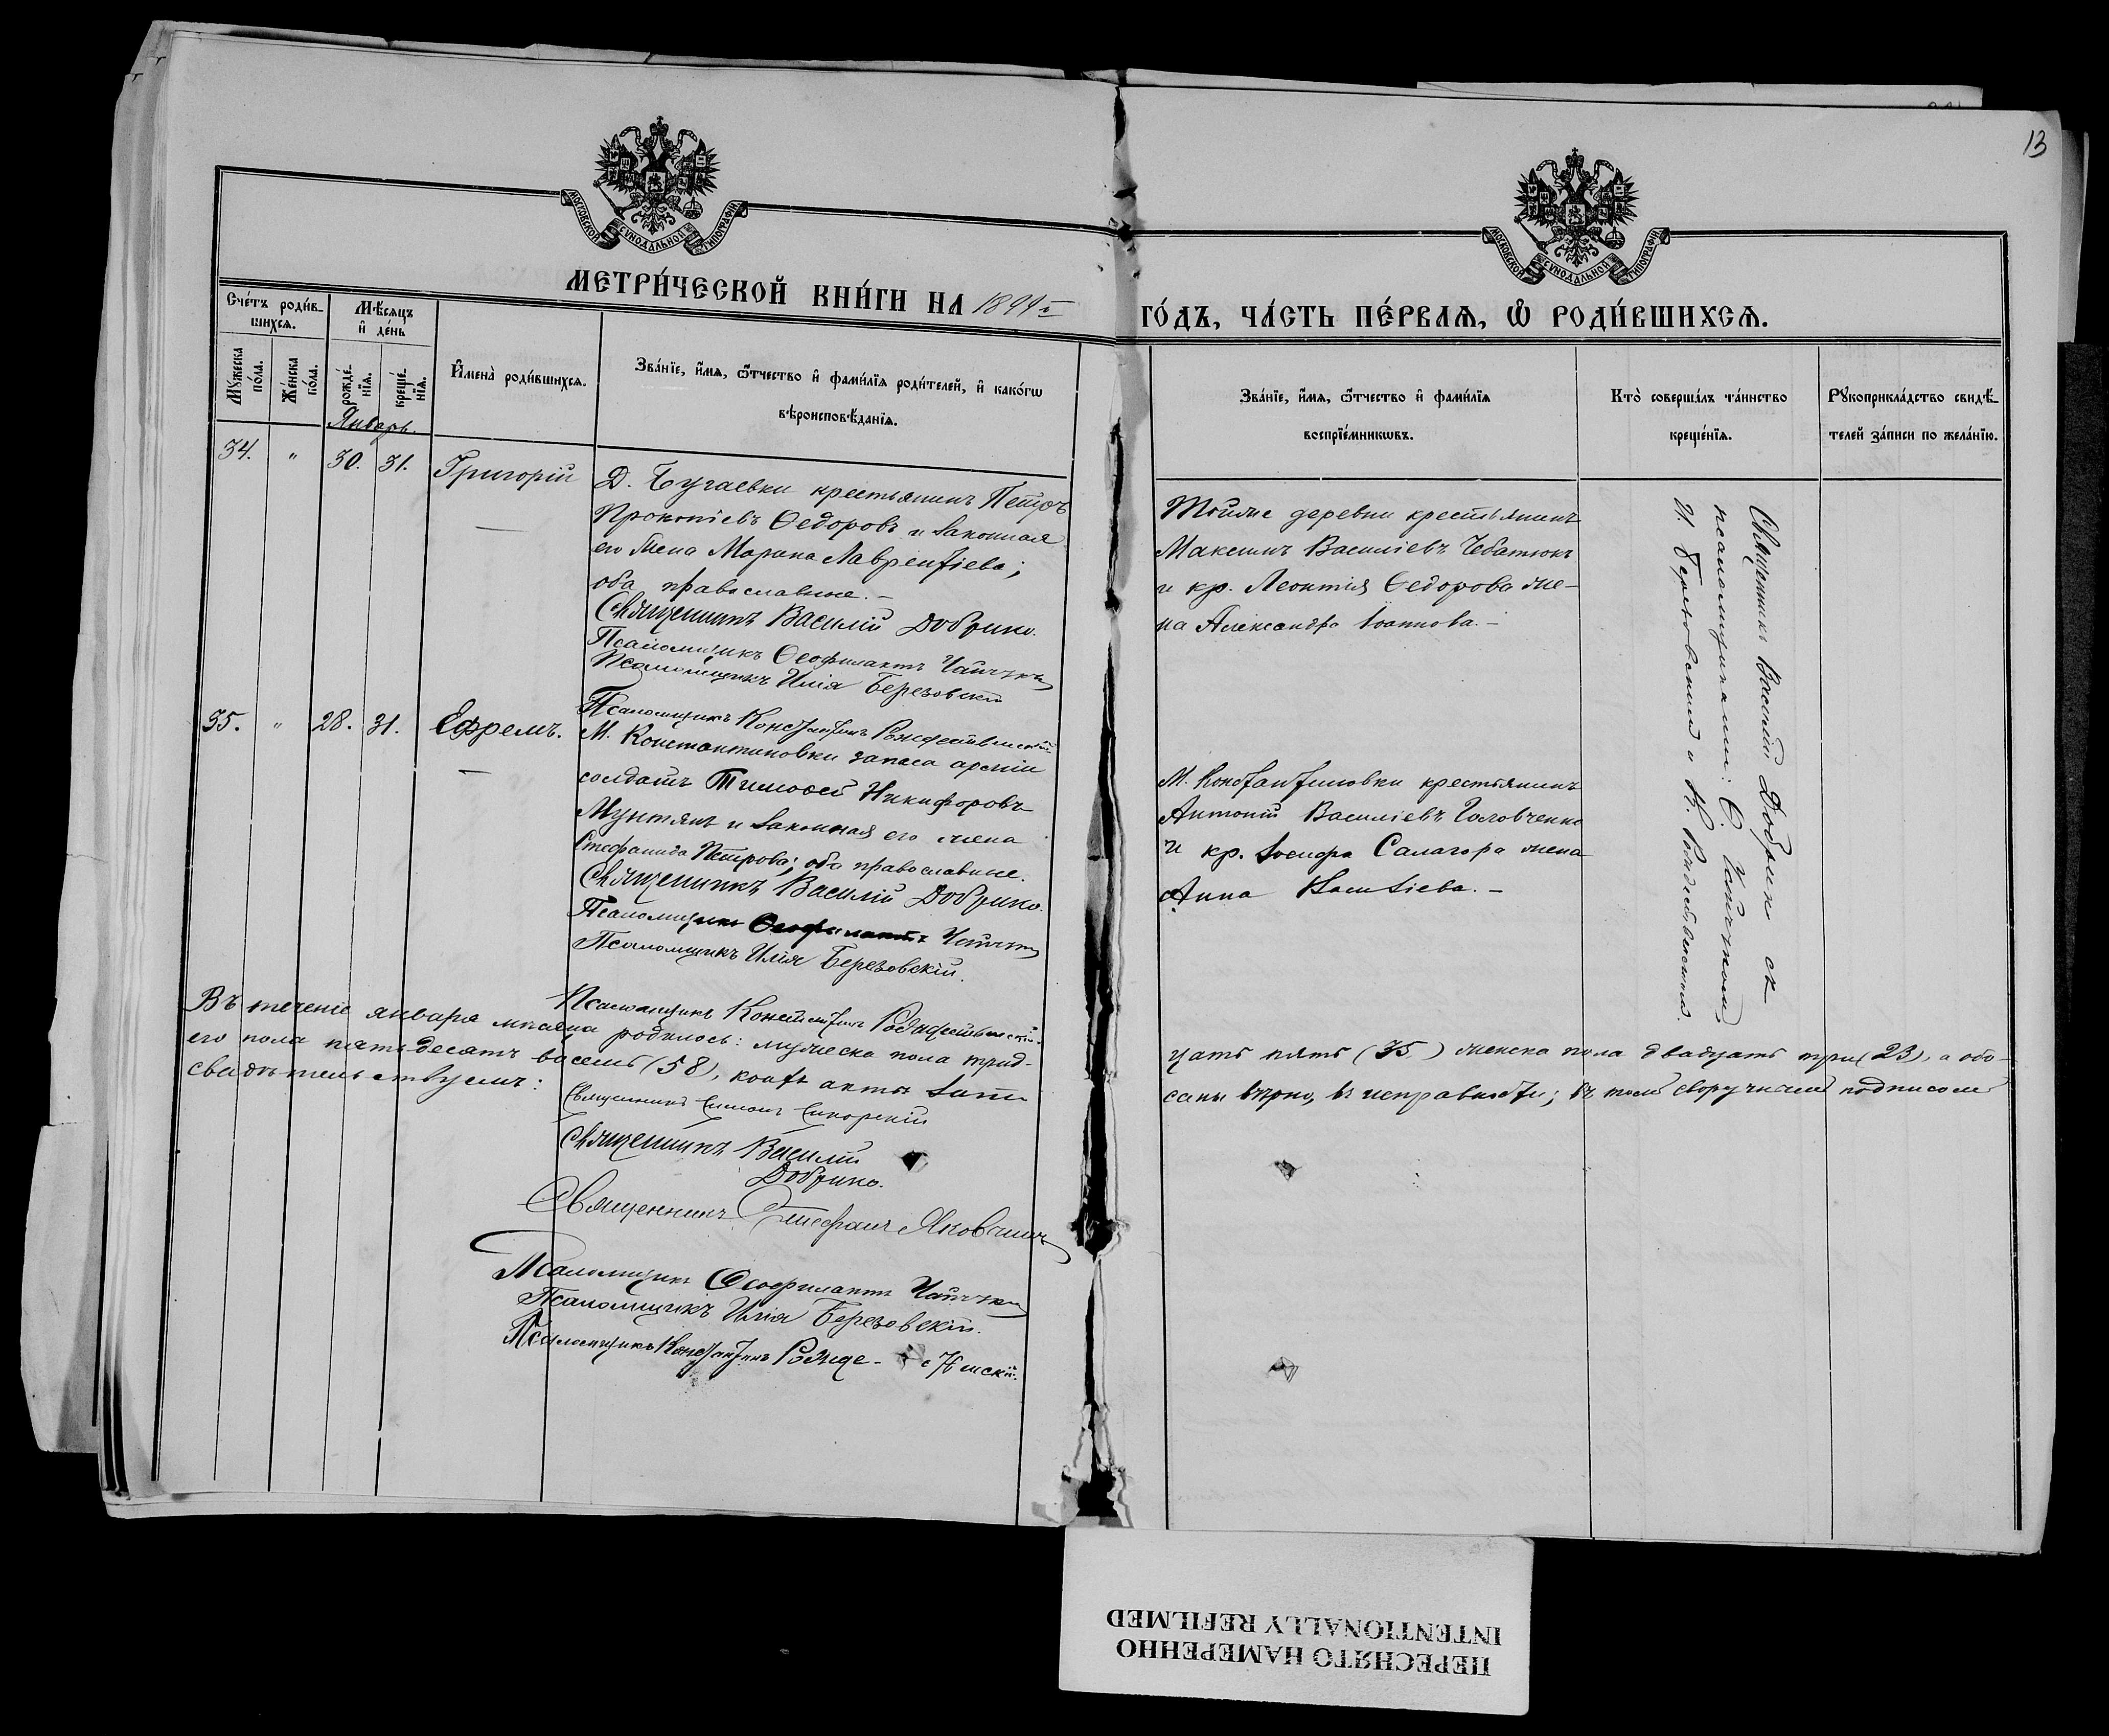 13
МОСКОВСКОЙ СѴНОДАЛЬНОЙ ТИПОГРАФІИ
МОСКОВСКОЙ СѴНОДАЛЬНОЙ ТИПОГРАФІИ
МЕТРИ́ЧЕСКОЙ КНИ́ГИ НА
ГО́ДЪ, ЧА́СТЬ ПЕ́РВАѦ, Ѽ РОДИ́ВШИХСѦ.
Сче́тъ роди́в-
шихсѧ.
Мꙋ́жеска по́ла.
Же́нска по́ла.
Мѣ́сѧцъ и҆ де́нь
рожде́-нїѧ.
креще́-нїѧ.
И҆мена̀ роди́вшихсѧ.
Зва́нїе, и҆́мѧ, ѻ҆́тчество и҆ фами́лїѧ роди́телей, и҆ како́гѡ
вѣроисповѣ́данїѧ.
Зва́нїе, и҆́мѧ, ѻ҆́тчество и҆ фами́лїѧ
воспрїе́мникѡвъ.
Кто̀ соверша́лъ та́инство
креще́нїѧ.
Рꙋкоприкла́дство свидѣ́-
телей за́писи по жела́нїю.
Январь.
34. " 30. 31. Григорій
Д. Бугаевки крестьянинъ Петръ
Прокопіевъ Ѳедоровъ и законная
его жена Марина Лаврентіева;
оба православные.-
Священникъ Василій Добрино.
Псаломщикъ Ѳеофилактъ
Псаломщикъ Илія Березовскій
Псаломщикъ Константинъ Рождественскій
Тойже деревни крестьянинъ
Максимъ Василіевъ Чебатюкъ
и кр. Леонтія Ѳедорова же-
на Александра Іоаннова.-
Священникъ Василій
псаломщиками: Ѳ.
И. Березовскимъ и К. Рождественскимъ.
35. " 28. 31. Ефремъ.
М. Константиновки запаса арміи
солдатъ Тимоѳей Никифоровъ
Мунтянъ и законная его жена
Стефанида Петрова; оба православные.
Священникъ Василій Добрино.
Псаломщикъ Ѳеофилактъ
Псаломщикъ Илія Березовскій.
Псаломщикъ Константинъ Рождественскій.
М. Константиновки крестьянинъ
Антоній Василіевъ Головченко
и кр. Іосифа Салагора жена
Анна
Въ теченіе января мѣсяца родилось: мужеска пола трид-
цать пять (35) женска пола двадцать три (23), а обо-
его пола пятьдесятъ восемь (58), коихъ акты запи-
саны вѣрно, въ исправности; въ чемъ своручнымъ подписомъ
свидѣтельствуемъ:
Священникъ Симонъ Сикорскій
Священникъ Василій
Добрино.
Священникъ Стефанъ
Псаломщикъ Ѳеофилактъ
Псаломщикъ Илія Березовскій.
Псаломщикъ Константинъ
ПЕРЕСНЯТО НАМЕРЕННО
INTENTIONALLY REFILMED